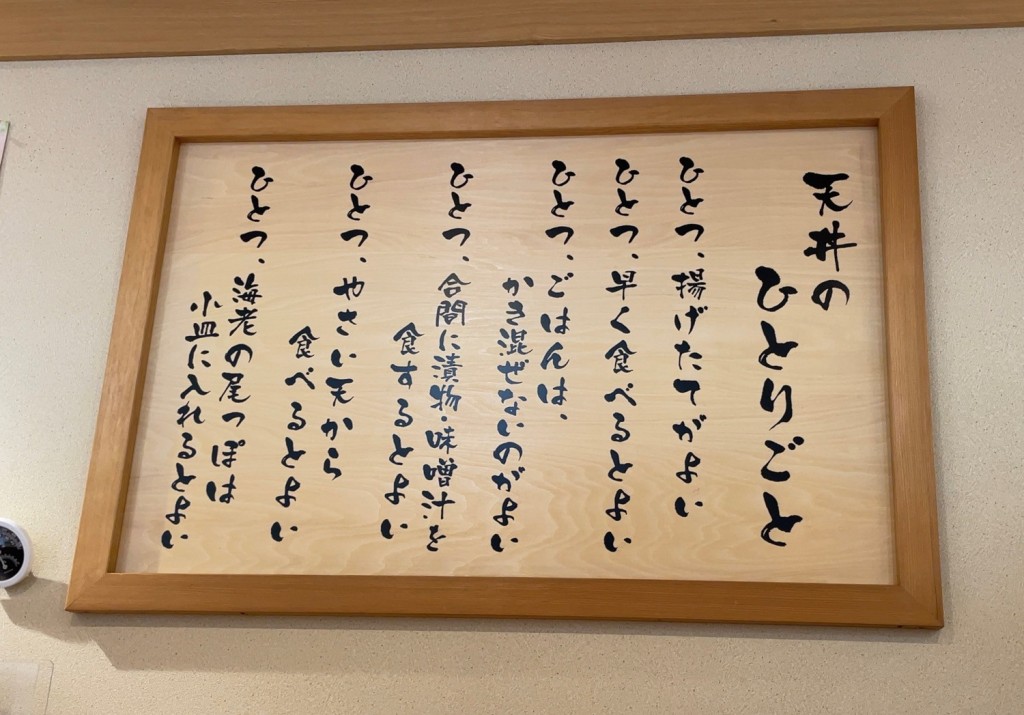 天丼の
ひとりごと
ひとつ、揚げたてがよい
ひとつ、早く食べるとよい
ひとつ、ごはんは、
かき混ぜないのがよい
ひとつ、合間に漬物・味噌汁を
食するとよい
ひとつ、やさい天から
食べるとよい
ひとつ、海老の尾っぽは
小皿に入れるとよい